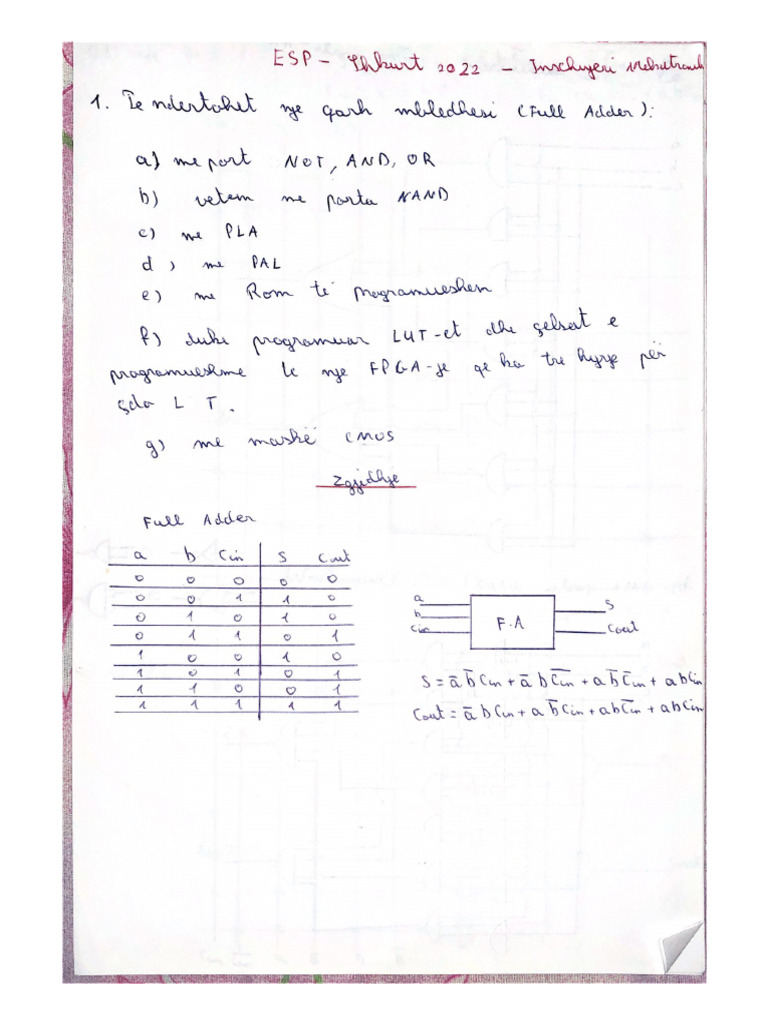 ESP - Shkurt 2022 - Inxhinjeri
1. Te ndertohet nje qark mbledhesi (Full Adder):
a) me port NOT, AND, OR
b) vetem me porta NAND
c) me PLA
d) me PAL
e) me Rom te programueshem
f) duke programuar LUT-et dhe çelsat e
programueshme te nje FPGA-je qe ka tre hyrje për
çdo L T.
g) me mashë CMOS
Zgjidhje
Full Adder
a b Cin S Cout
0 0 0 0 0
0 0 1 1 0
0 1 0 1 0
0 1 1 0 1
1 0 0 1 0
1 0 1 0 1
1 1 0 0 1
1 1 1 1 1
a
b
Cin
F.A
S
Cout
S = a̅ b̅ Cin + a̅ b C̅i̅n̅ + a b̅ C̅i̅n̅ + a b Cin
Cout = a̅ b Cin + a b̅ Cin + a b C̅i̅n̅ + a b Cin